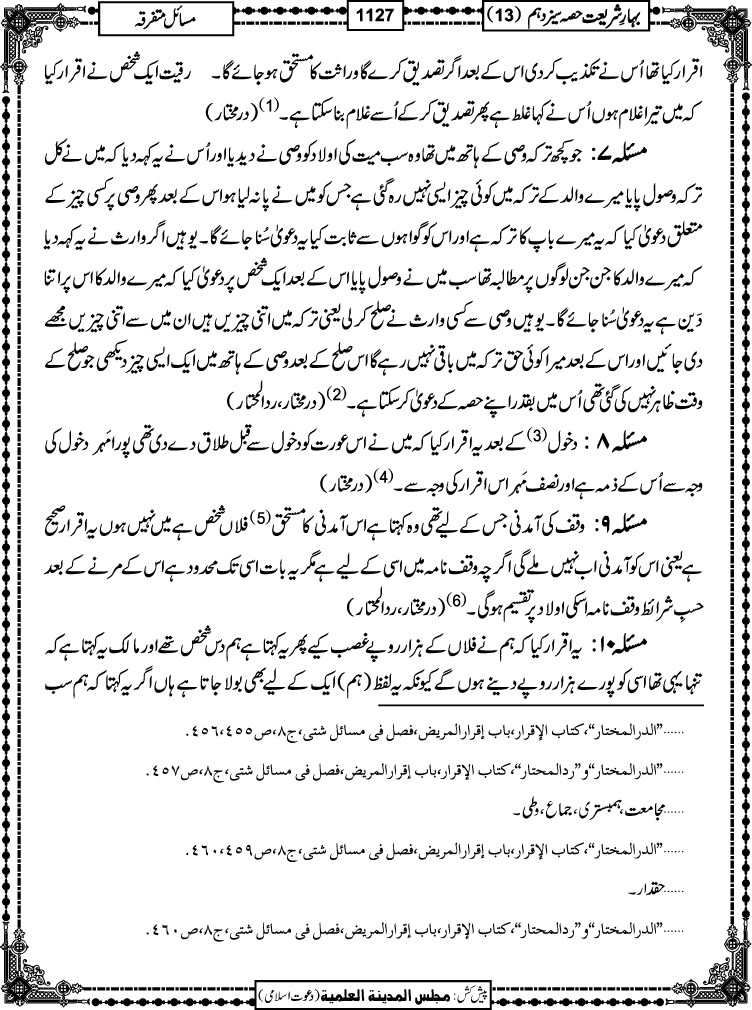 بہارِ شریعت حصہ سیزدہم (13)
1127
مسائل متفرقہ
اقرار کیا تھا اُس نے تکذیب کردی اس کے بعد اگر تصدیق کرے گا وراثت کا مستحق ہوجائے گا۔ رقیت ایک شخص نے اقرار کیا
کہ میں تیرا غلام ہوں اُس نے کہا غلط ہے پھر تصدیق کر کے اُسے غلام بنا سکتا ہے۔(1) (درمختار)
مسئلہ ۷: جو کچھ ترکہ وصی کے ہاتھ میں تھا وہ سب میت کی اولاد کو وصی نے دیدیا اور اُس نے یہ کہہ دیا کہ میں نے کل
ترکہ وصول پایا میرے والد کے ترکہ میں کوئی چیز ایسی نہیں رہ گئی ہے جس کو میں نے پانہ لیا ہو اس کے بعد پھر وصی پر کسی چیز کے
متعلق دعویٰ کیا کہ یہ میرے باپ کا ترکہ ہے اور اس کو گواہوں سے ثابت کیا یہ دعویٰ سُنا جائے گا۔ یوہیں اگر وارث نے یہ کہہ دیا
کہ میرے والد کا جن جن لوگوں پر مطالبہ تھا سب میں نے وصول پایا اس کے بعد ایک شخص پر دعویٰ کیا کہ میرے والد کا اس پر اتنا
دَین ہے یہ دعویٰ سُنا جائے گا۔ یوہیں وصی سے کسی وارث نے صلح کرلی یعنی ترکہ میں اتنی چیزیں ہیں ان میں سے اتنی چیزیں مجھے
دی جائیں اور اس کے بعد میرا کوئی حق ترکہ میں باقی نہیں رہے گا اس صلح کے بعد وصی کے ہاتھ میں ایک ایسی چیز دیکھی جو صلح کے
وقت ظاہر نہیں کی گئی تھی اُس میں بقدر اپنے حصہ کے دعویٰ کرسکتا ہے۔(2) (درمختار، ردالمحتار)
مسئلہ ۸: دخول(3) کے بعد یہ اقرار کیا کہ میں نے اس عورت کو دخول سے قبل طلاق دے دی تھی پورا مَہر دخول کی
وجہ سے اُس کے ذمہ ہے اور نصف مَہر اس اقرار کی وجہ سے۔(4) (درمختار)
مسئلہ ۹: وقف کی آمدنی جس کے لیے تھی وہ کہتا ہے اس آمدنی کا مستحق(5) فلاں شخص ہے میں نہیں ہوں یہ اقرار صحیح
ہے یعنی اس کو آمدنی اب نہیں ملے گی اگرچہ وقف نامہ میں اسی کے لیے ہے مگر یہ بات اسی تک محدود ہے اس کے مرنے کے بعد
حسبِ شرائط وقف نامہ اسکی اولاد پر تقسیم ہوگی۔(6) (درمختار، ردالمحتار)
مسئلہ ۱۰: یہ اقرار کیا کہ ہم نے فلاں کے ہزار روپے غصب کیے پھر یہ کہتا ہے ہم دس شخص تھے اور مالک یہ کہتا ہے کہ
تنہا یہی تھا اسی کو پورے ہزار روپے دینے ہوں گے کیونکہ یہ لفظ (ہم) ایک کے لیے بھی بولا جاتا ہے ہاں اگر یہ کہتا کہ ہم سب
......”الدرالمختار“،کتاب الإقرار،باب إقرارالمریض،فصل فی مسائل شتی،ج۸،ص۴۵۵،۴۵۶.
......”الدرالمختار“و”ردالمحتار“،کتاب الإقرار،باب إقرارالمریض،فصل فی مسائل شتی،ج۸،ص۴۵۷.
......مجامعت،ہمبستری،جماع،وطی۔
......”الدرالمختار“،کتاب الإقرار،باب إقرارالمریض،فصل فی مسائل شتی،ج۸،ص۴۵۹،۴۶۰.
......حقدار۔
......”الدرالمختار“و”ردالمحتار“،کتاب الإقرار،باب إقرارالمریض،فصل فی مسائل شتی،ج۸،ص۴۶۰.
پیش کش: مجلس المدینۃ العلمیۃ (دعوت اسلامی)